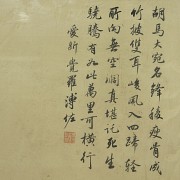 胡馬大宛名鋒稜瘦骨成
竹披雙耳峻風入四蹄輕
所向無空闊真堪託死生
驍騰有如此萬里可橫行
愛新覺羅溥佐